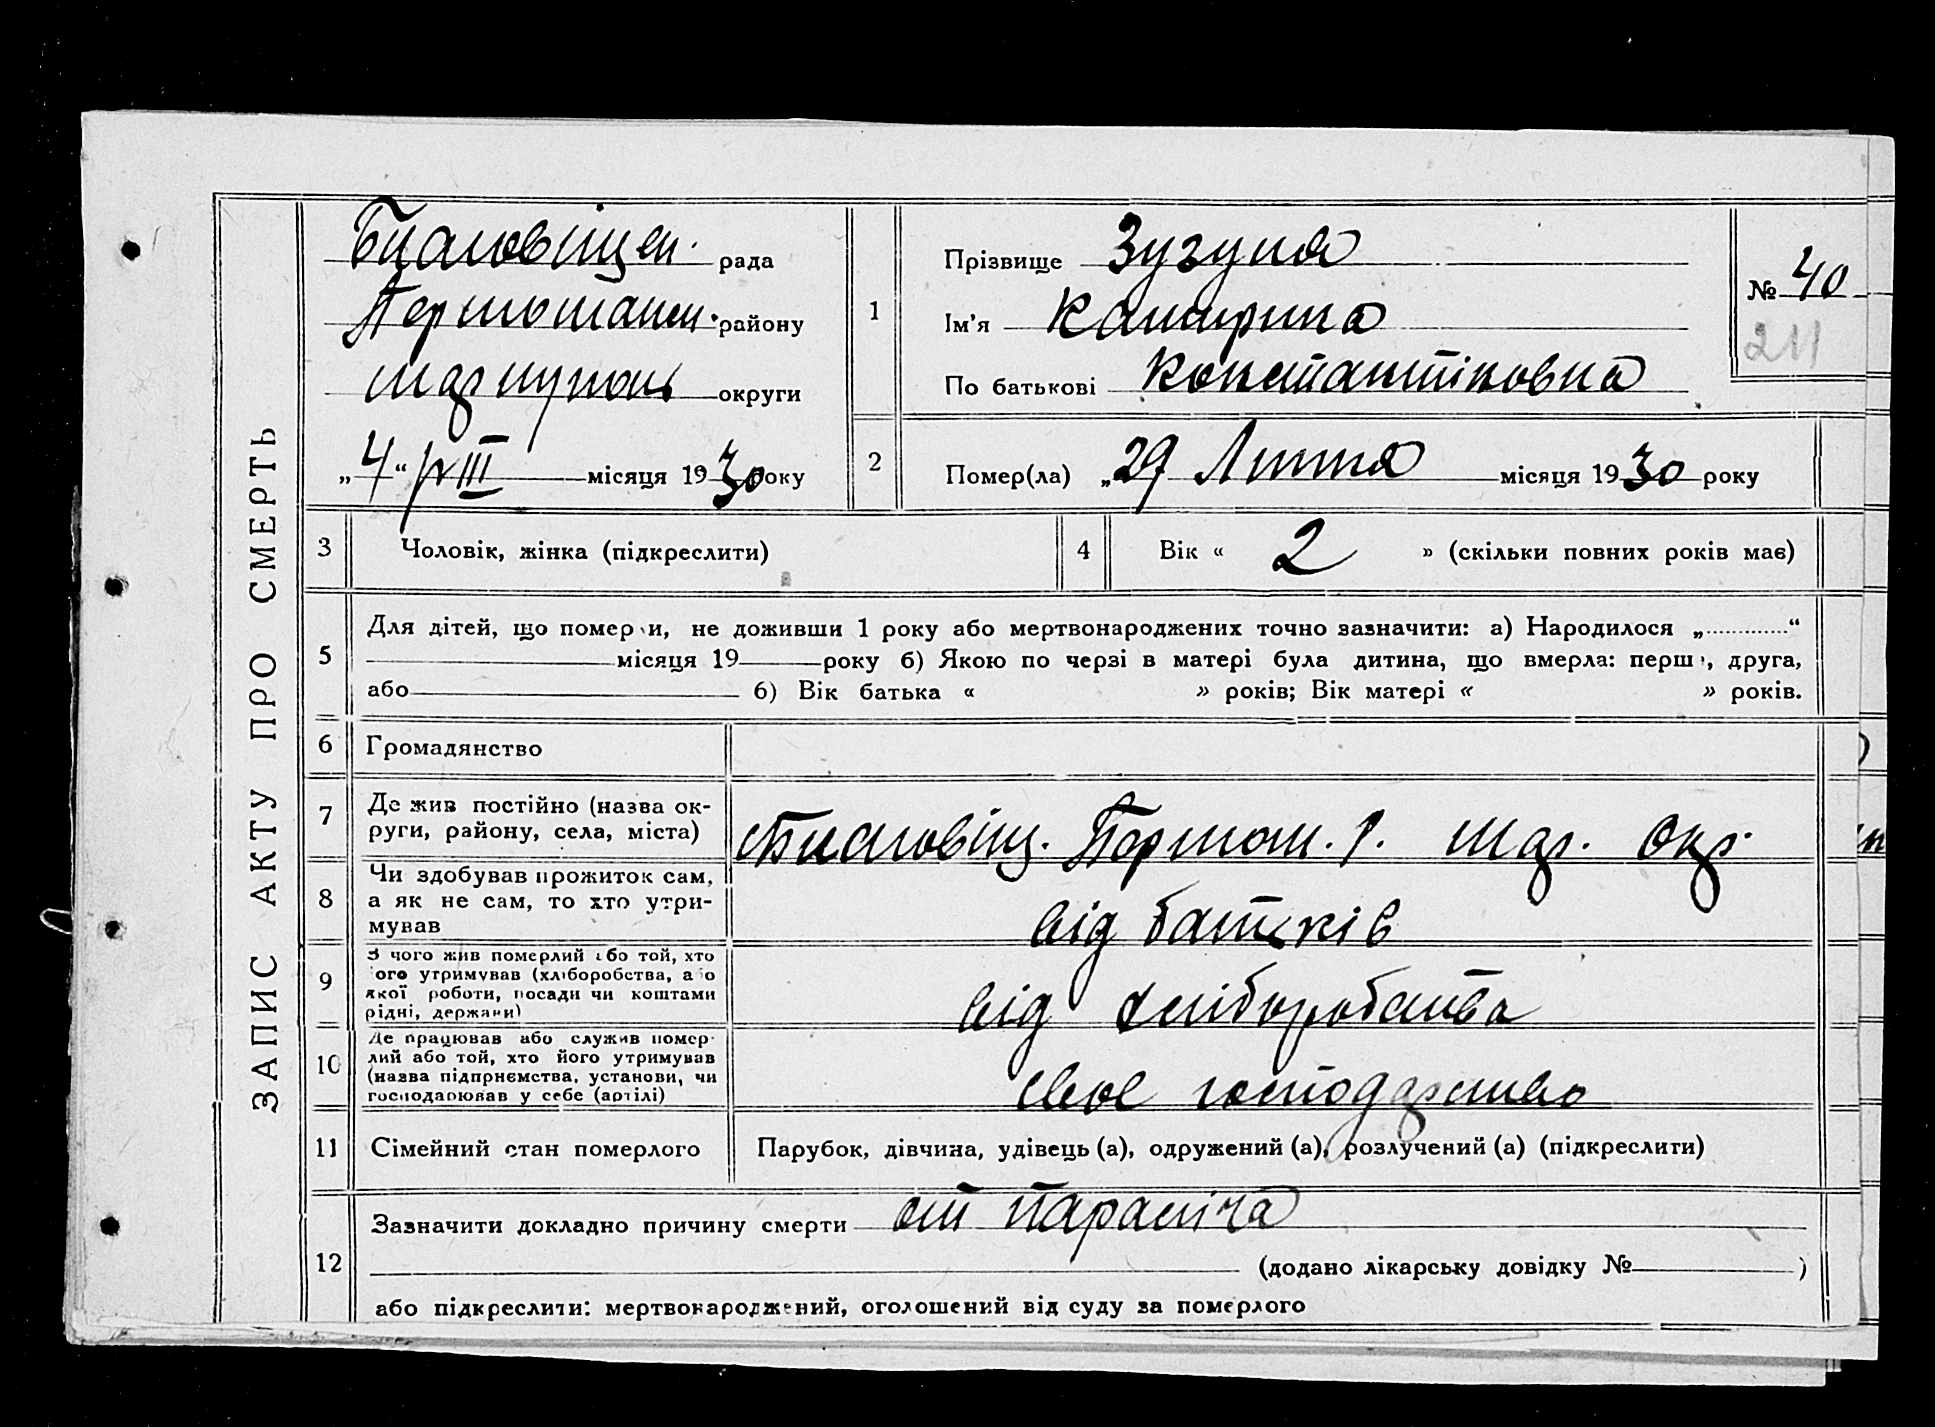 ЗАПИС АКТУ ПРО СМЕРТЬ
Благовіщен. рада
району
Маріуполь округи
„4“ III місяця 1930 року
1
Прізвище Зугуля
Ім'я Катирина
По батькові Константіновна
№ 40
211
2
Помер(ла) „29 Лютня місяця 1930 року
3 Чоловік, жінка (підкреслити)
4 Вік « 2 » (скільки повних років має)
5 Для дітей, що померли, не доживши 1 року або мертвонароджених точно зазначити: а) Народилося „ “
місяця 19 року б) Якою по черзі в матері була дитина, що вмерла: перша, друга,
або б) Вік батька « » років; Вік матері « » років.
6 Громадянство
7 Де жив постійно (назва ок-
руги, району, села, міста)
Благовіщ. р. Мар. Окр.
8 Чи здобував прожиток сам,
а як не сам, то хто утри-
мував
від батьків
9 З чого жив померлий або той, хто
його утримував (хліборобства, або
якої роботи, посади чи коштами
рідні, держави)
від хліборобства
10 Де працював або служив помер-
лий або той, хто його утримував
(назва підприємства, установи, чи
господарював у себе (артілі)
своє господарство
11 Сімейний стан померлого
Парубок, дівчина, удівець (а), одружений (а), розлучений (а) (підкреслити)
12 Зазначити докладно причину смерти от параліча
(додано лікарську довідку № )
або підкреслити: мертвонароджений, оголошений від суду за померлого